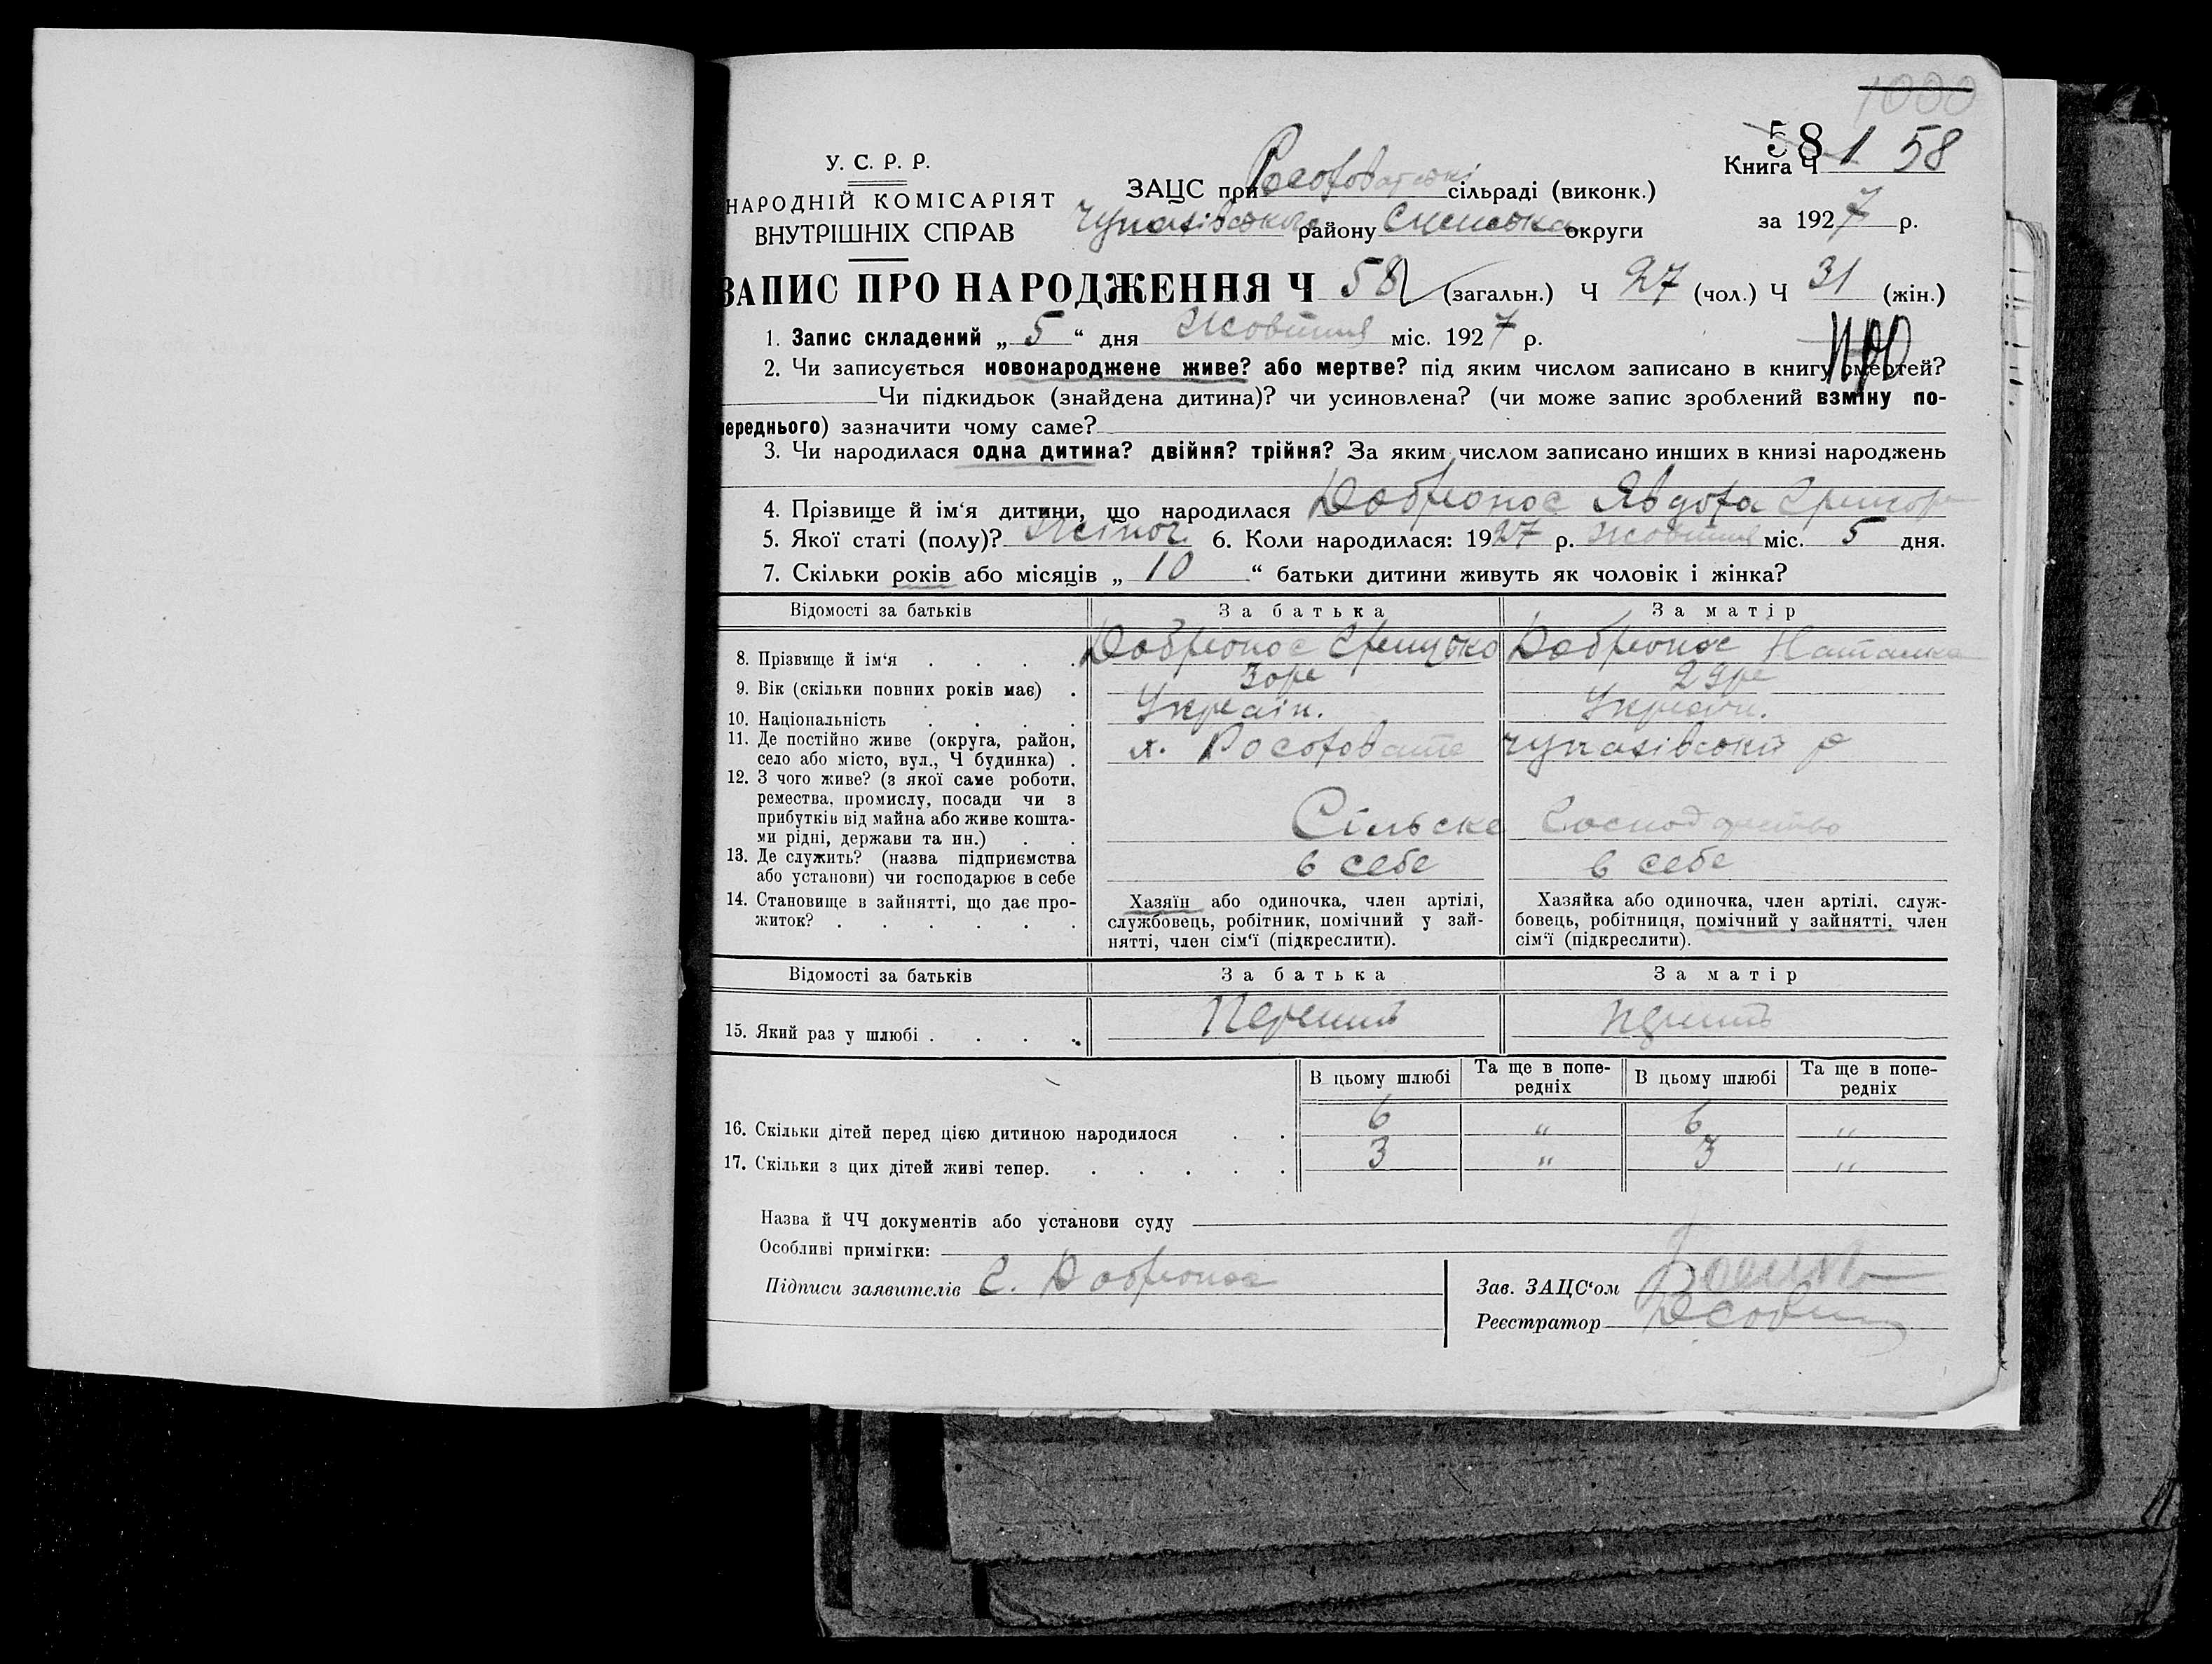 1000
58 1 58
У. С. Р. Р.
НАРОДНІЙ КОМІСАРІЯТ
ВНУТРІШНІХ СПРАВ
ЗАЦС при Рософоватські сільраді (виконк.)
Чупахівського району Сумська округи
Книга Ч
за 1927 р.
ЗАПИС ПРО НАРОДЖЕННЯ Ч 58 (загальн.) Ч 27 (чол.) Ч 31 (жін.)
1. Запис складений „ 5 “ дня Жовтня міс. 1927 р.
2. Чи записується новонароджене живе? або мертве? під яким числом записано в книгу смертей?
Чи підкидьок (знайдена дитина)? чи усиновлена? (чи може запис зроблений взміну по-
переднього) зазначити чому саме?
3. Чи народилася одна дитина? двійня? трійня? За яким числом записано инших в книзі народжень
4. Прізвище й ім‘я дитини, що народилася Добронос Явдоха Григор
5. Якої статі (полу)? Жіноч. 6. Коли народилася: 1927 р. жовтня міс. 5 дня.
7. Скільки років або місяців „ 10 “ батьки дитини живуть як чоловік і жінка?
Відомості за батьків За батька За матір
8. Прізвище й ім‘я Добронос Грицько Добронос Наталка
9. Вік (скільки повних років має) 30р 29р
10. Національність Україн. Україн.
11. Де постійно живе (округа, район,
село або місто, вул., Ч будинка) х. Рософовате Чупахівський р
12. З чого живе? (з якої саме роботи,
ремества, промислу, посади чи з
прибутків від майна або живе кошта-
ми рідні, держави та ин.) Сільске Господарство
13. Де служить? (назва підприємства
або установи) чи господарює в себе в себе в себе
14. Становище в зайнятті, що дає про-
житок?
Хазяїн або одиночка, член артілі,
службовець, робітник, помічний у зай-
нятті, член сім‘ї (підкреслити).
Хазяйка або одиночка, член артілі, служ-
бовець, робітниця, помічний у зайнятті, член
сім‘ї (підкреслити).
Відомості за батьків За батька За матір
15. Який раз у шлюбі Перший Перший
В цьому шлюбі Та ще в попе-
редніх В цьому шлюбі Та ще в попе-
редніх
16. Скільки дітей перед цією дитиною народилося 6 „ 6 „
17. Скільки з цих дітей живі тепер. 3 „ 3 „
Назва й ЧЧ документів або установи суду
Особливі примітки:
Підписи заявителів Г. Добронос
Зав. ЗАЦС‘ом
Реєстратор